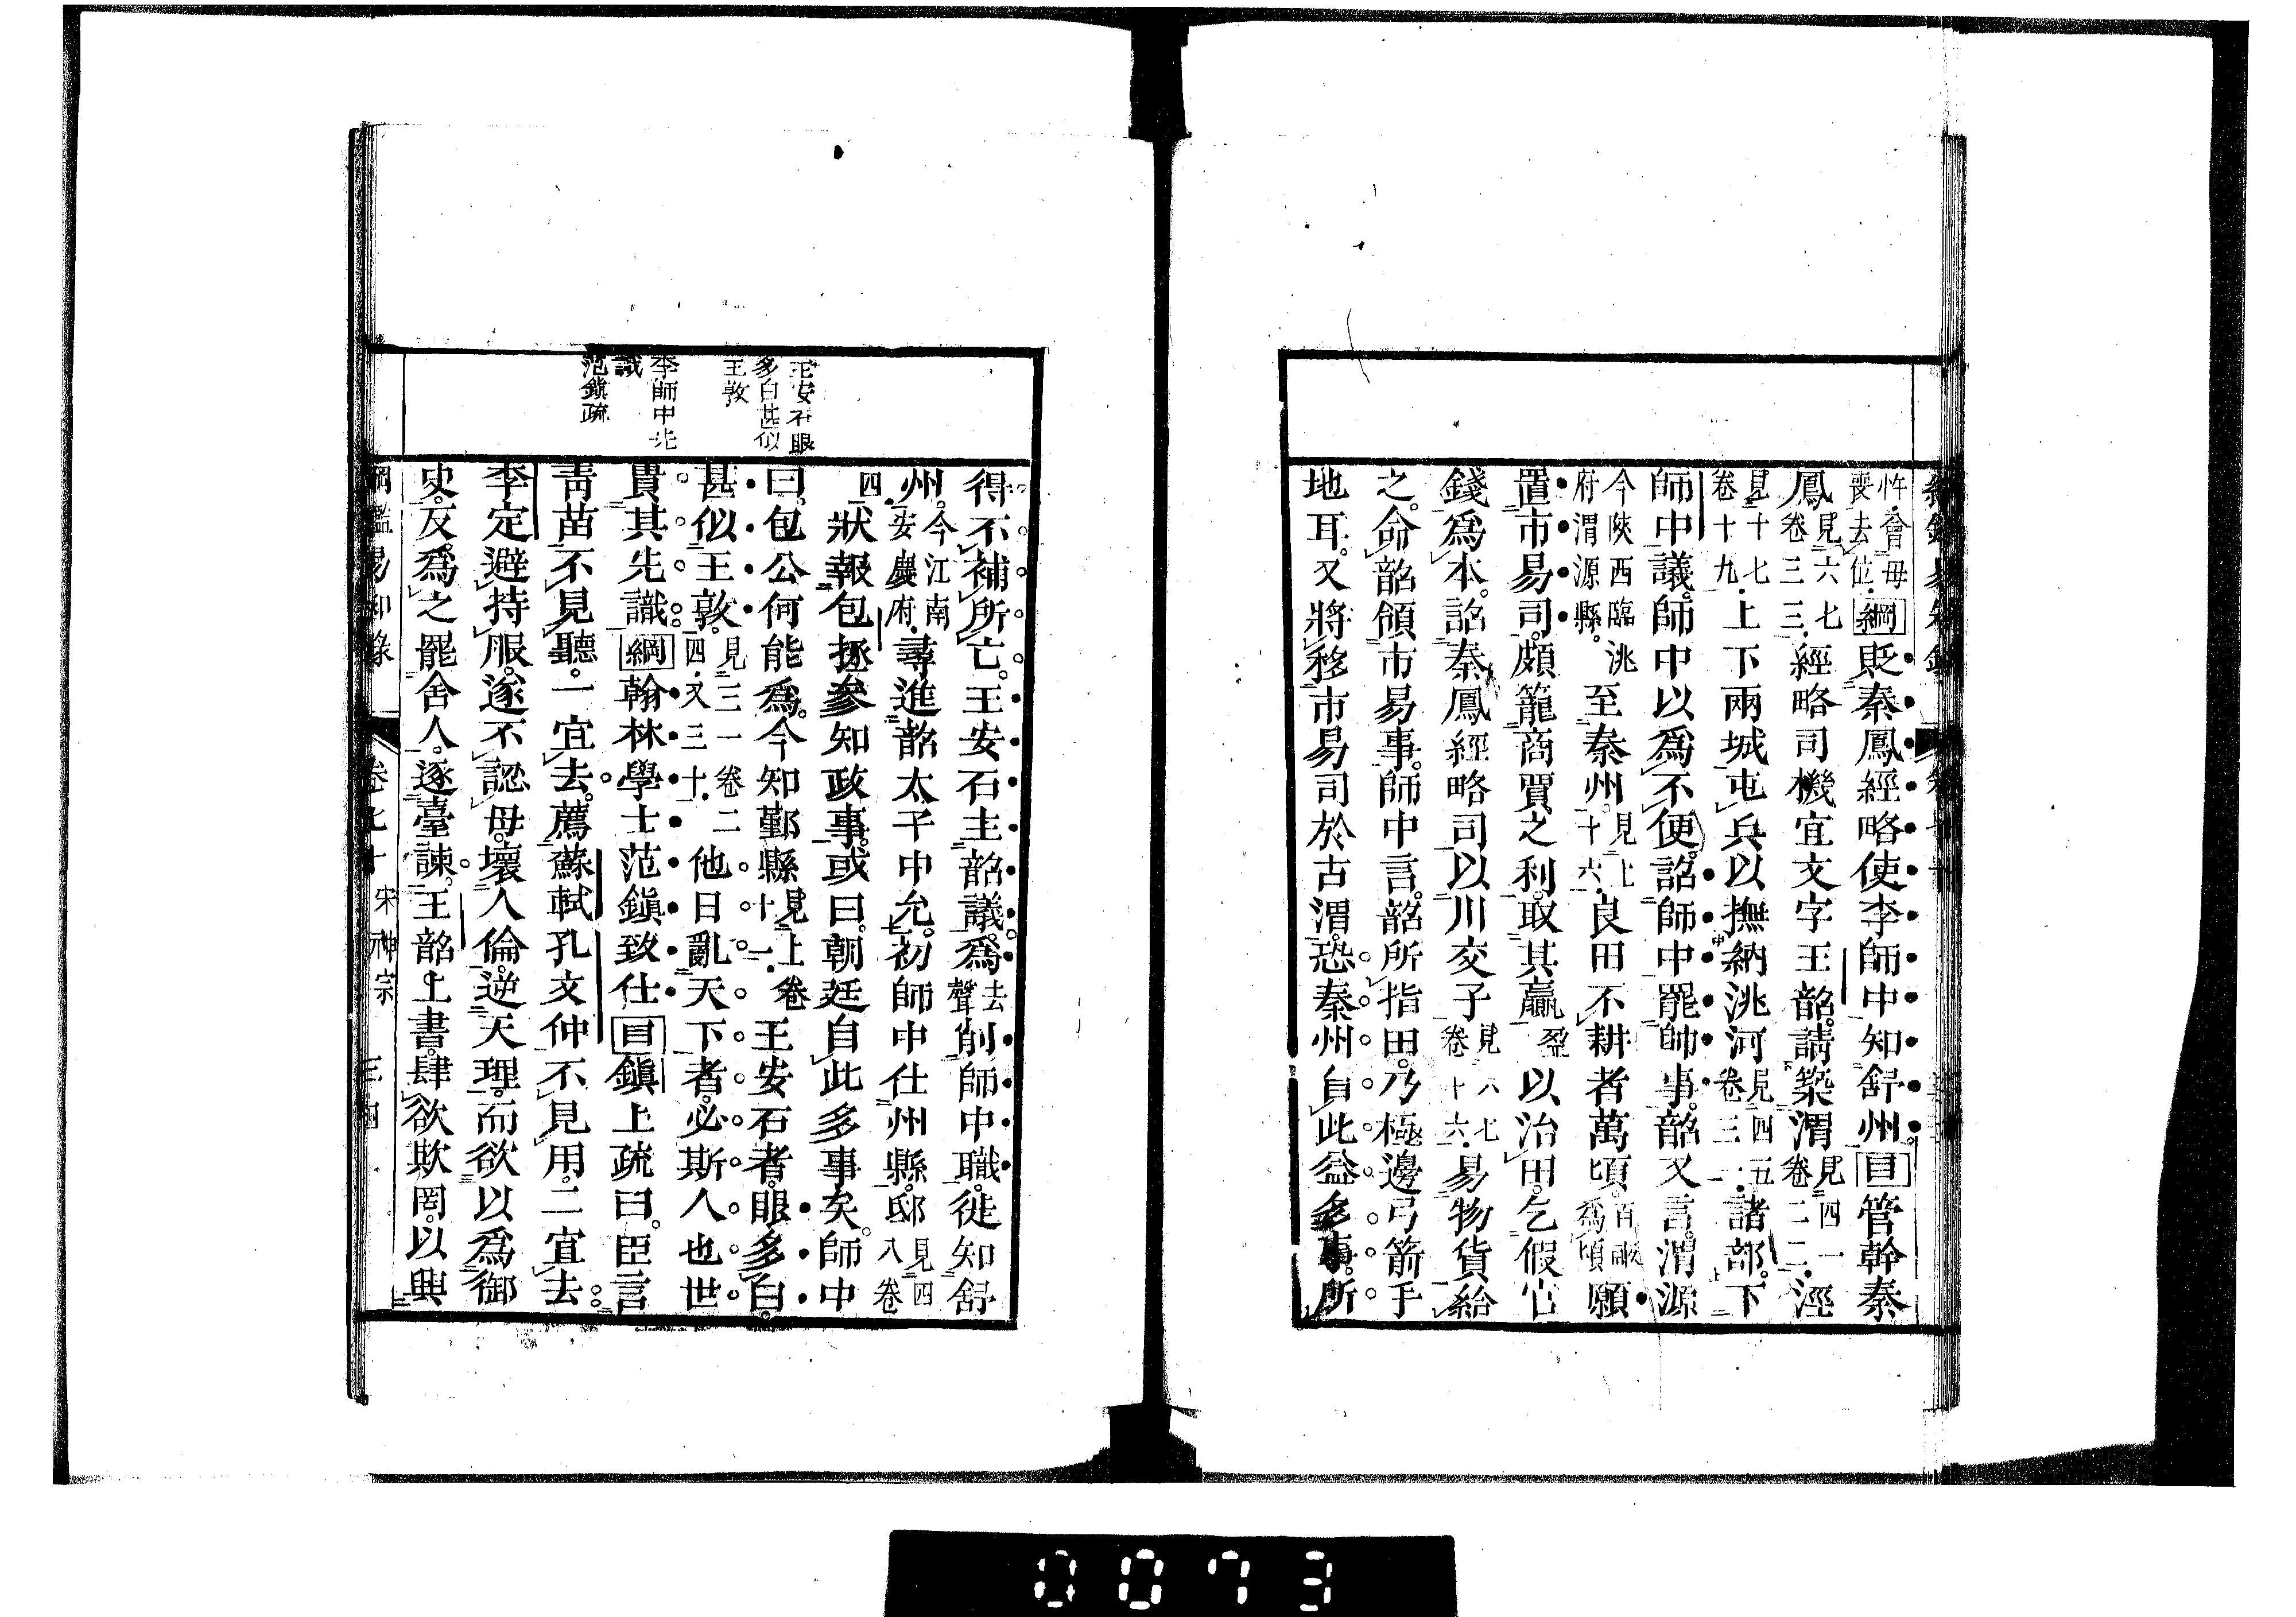 忤會母喪去位綱貶秦鳳經略使李師中知舒州目管幹秦
鳳見六七卷三三經略司機宜文字王韶請築渭見四一卷二二涇
見十七卷十九上下兩城屯兵以撫納洮河見四五卷三一諸部下
師中議師中以爲不便詔師中罷帥事韶又言渭源
今陝西臨洮府渭源縣至秦州見上十六良田不耕者萬頃百畝爲頃願
置市易司頗籠商賈之利取其贏盈以治田乞假官
錢爲本詔秦鳳經略司以川交子見六七卷十六易物貨給
之命韶領市易事師中言韶所指田乃極邊弓箭手
地耳又將移市易司於古渭恐秦州自此益多事所
得不補所亡王安石主韶議爲去聲削師中職徙知舒
州今江南安慶府尋進韶太子中允初師中仕州縣邸見四八卷
四狀報包拯參知政事或曰朝廷自此多事矣師中
曰包公何能爲今知鄞縣見上卷十一王安石者眼多白
甚似王敦見三一卷二四又三十他日亂天下者必斯人也世
貴其先識綱翰林學士范鎭致仕目鎭上疏曰臣言
靑苗不見聽一宜去薦蘇軾孔文仲不見用二宜去
李定避持服遂不認母壞人倫逆天理而欲以爲御
史反爲之罷舍人逐臺諫王韶上書肆欲欺罔以興
王安石眼
多白甚似
王敦
李師中先
識
范鎭疏
綱鑑易知錄 卷七十 宋神宗 三四
0073